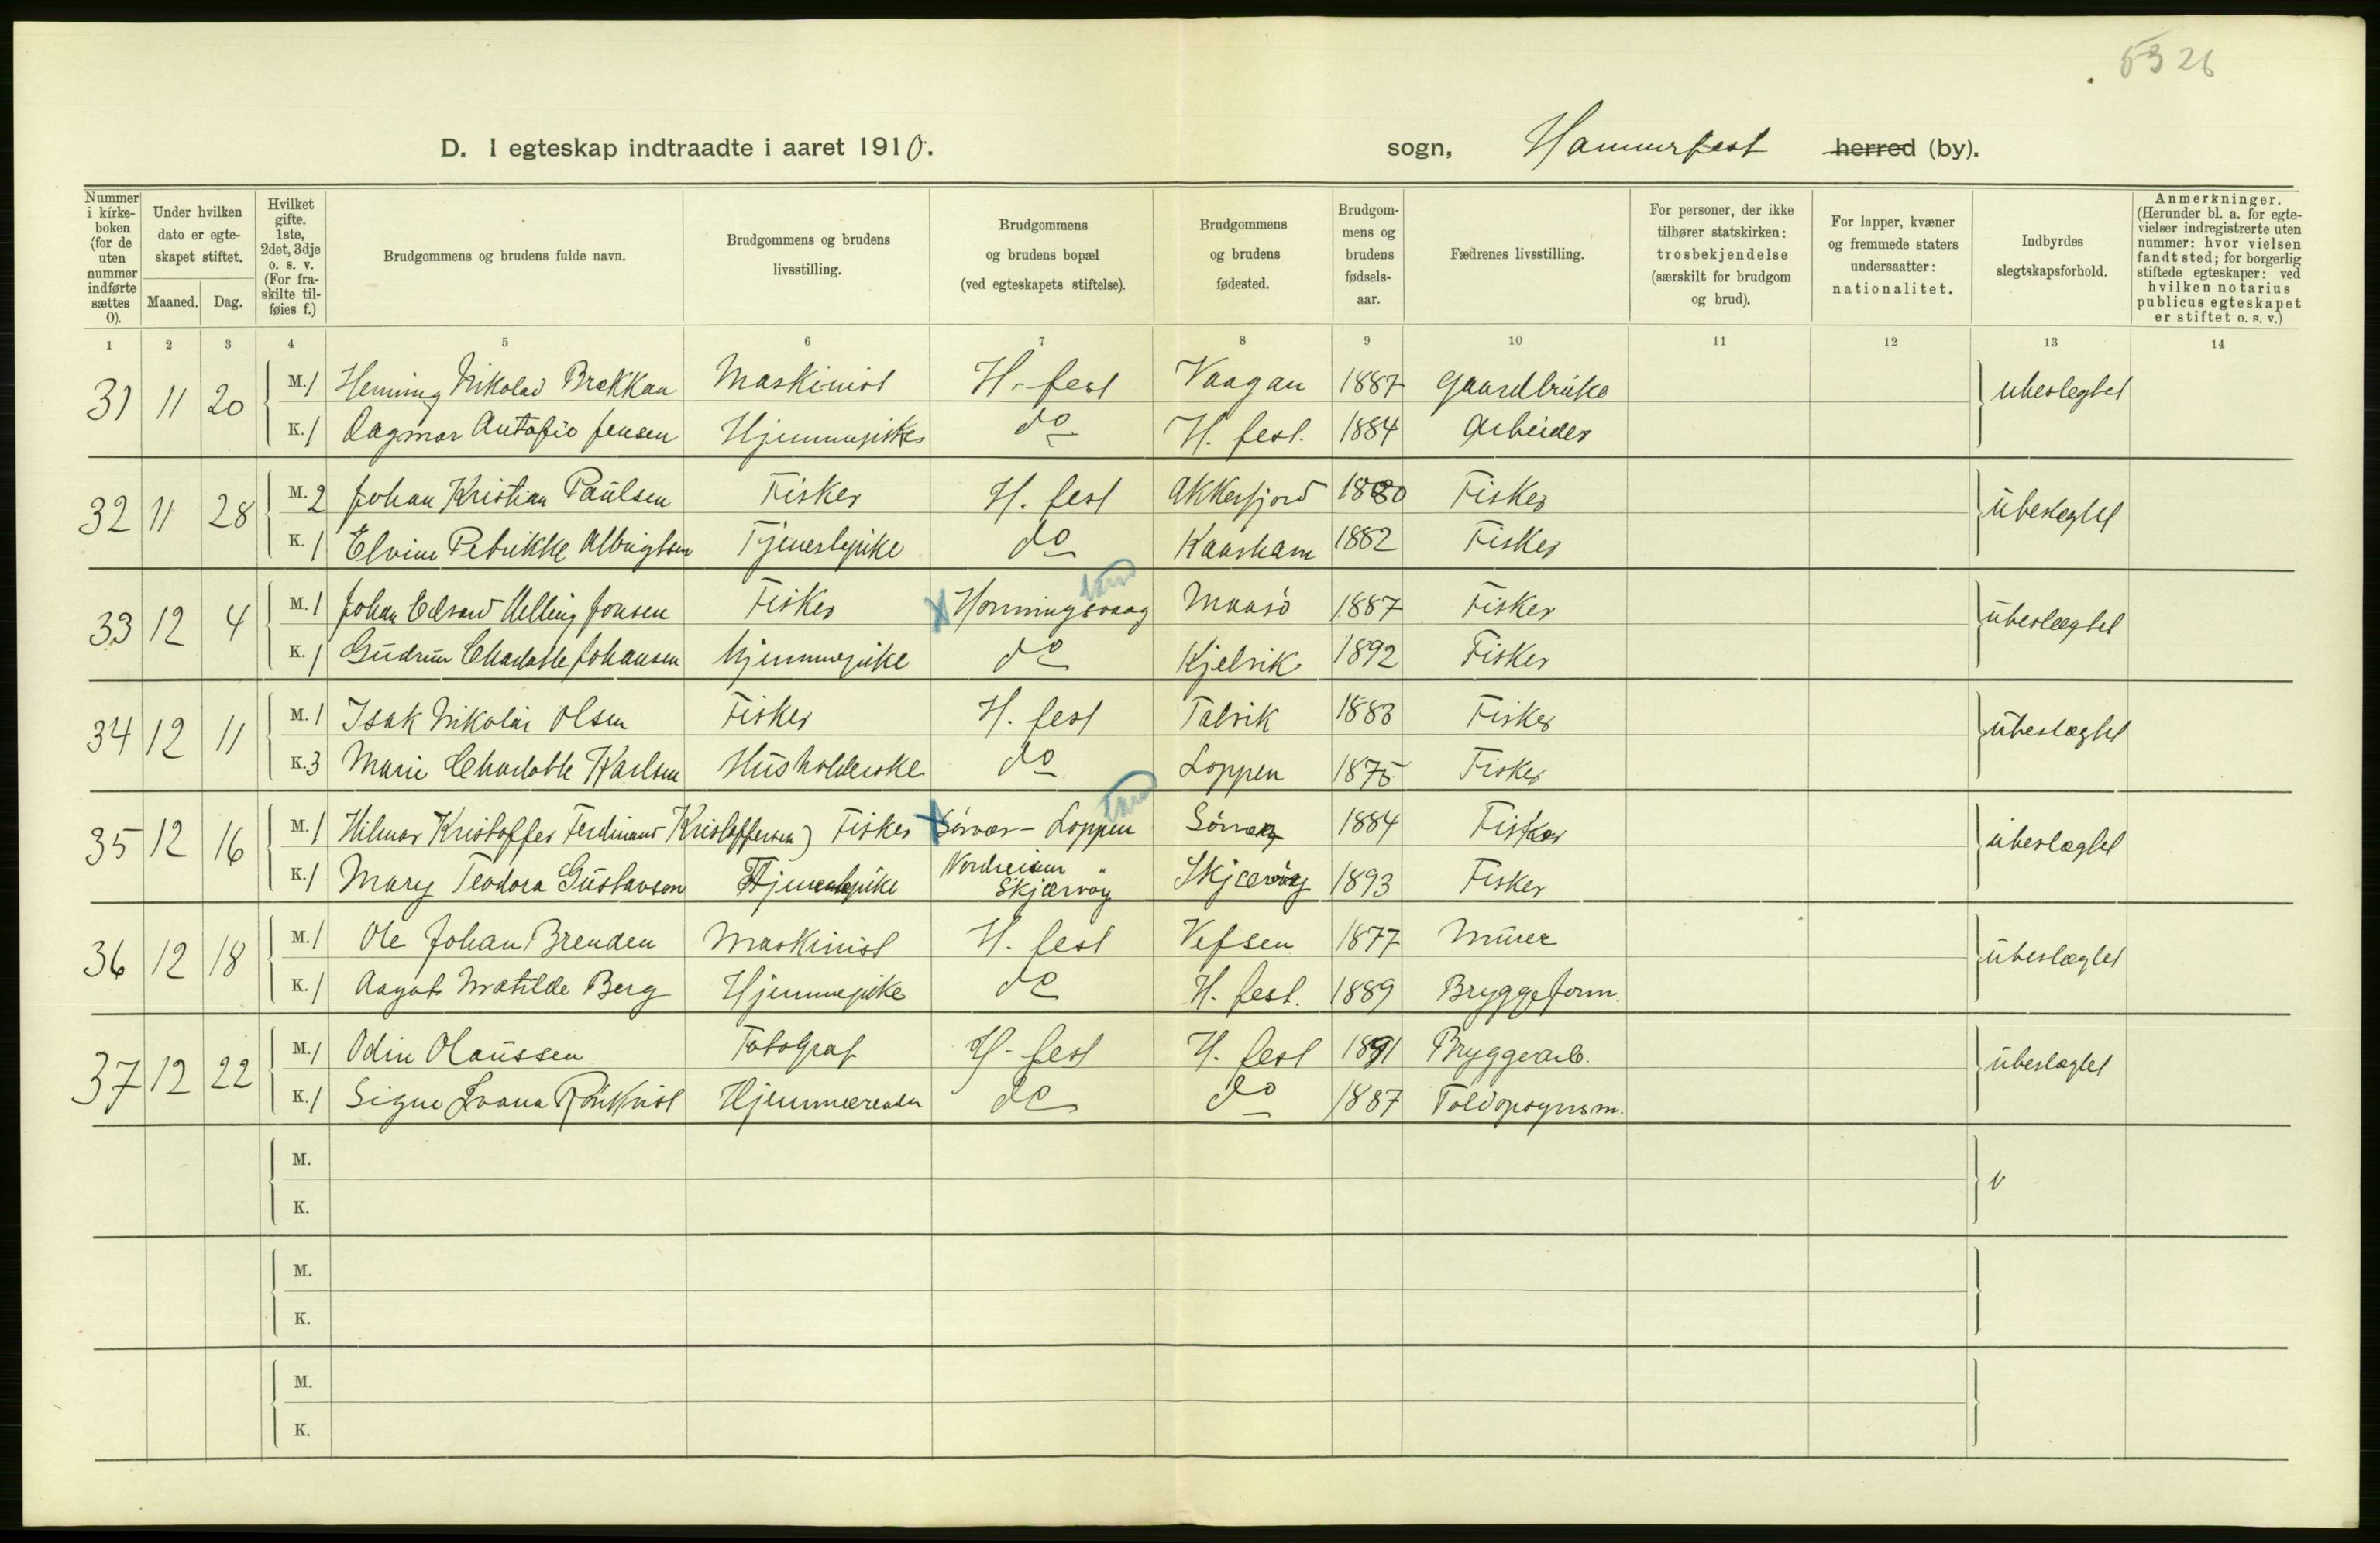 5326
D. I egteskap indtraadte i aaret 1910. sogn, Hammerfest herred (by).
Nummer i kirkeboken (for de uten nummer indførte sættes 0).
Under hvilken dato er egteskapet stiftet.
Maaned. Dag.
Hvilket gifte. 1ste, 2det, 3dje o. s. v. (For fraskilte tilføies f.)
Brudgommens og brudens fulde navn.
Brudgommens og brudens livsstilling.
Brudgommens og brudens bopæl (ved egteskapets stiftelse).
Brudgommens og brudens fødested.
Brudgommens og brudens fødselsaar.
Fædrenes livsstilling.
For personer, der ikke tilhører statskirken: trosbekjendelse (særskilt for brudgom og brud).
For lapper, kvæner og fremmede staters undersaatter: nationalitet.
Indbyrdes slegtskapsforhold.
Anmerkninger. (Herunder bl. a. for egtevielser indregistrerte uten nummer: hvor vielsen fandt sted; for borgerlig stiftede egteskaper: ved hvilken notarius publicus egteskapet er stiftet o. s. v.)
1 2 3 4 5 6 7 8 9 10 11 12 13 14
31 11 20 M. 1 Henning Nikolai Brekkan Maskinist H. fest Vaagan 1887 Gaardbruke ubeslegtet
K. 1 Dagmar Jensen Hjemmepike do H. fest. 1884 Arbeider
32 11 28 M. 2 Johan Kristian Paulsen Fisker H. fest Akkerfjord 1880 Fisker ubeslegtet
K. 1 Elvine Petrikke Albrigtsen Tjenestepike do Kaarhavn 1882 Fisker
33 12 4 M. 1 Johan Edvard Jonsen Fisker Honningsvaag Maasö 1887 Fisker ubeslægtet
K. 1 Gudrun Charlotte Johansen Hjemmepike do Kjelvik 1892 Fisker
34 12 11 M. 1 Isak Nikolai Olsen Fisker H. fest Talvik 1883 Fisker ubeslægtet
K. 3 Marie Charlotte Karlsen Husholderske do Loppen 1875 Fisker
35 12 16 M. 1 Hilmar Kristoffer Ferdinand Kristoffersen) Fisker Sörvær - Loppen Sörvær 1884 Fisker ubeslægtet
K. 1 Mary Teodora Gustavson Tjenestepike Nordreisen " Skjærvöy Skjærvöy 1893 Fisker
36 12 18 M. 1 Ole Johan Brenden Maskinist H. fest Vefsen 1877 Murer ubeslægtet
K. 1 Aagot Matilde Berg Hjemmepike do H. fest. 1889 Bryggeform.
37 12 22 M. 1 Odin Olaussen Fotograf H. fest H. fest 1891 Bryggearb. ubeslægtet
K. 1 Signe Ivana Rönkvist Hjemmeværende do do 1887 Toldopsynsm.
M. u
K.
M.
K.
M.
K.